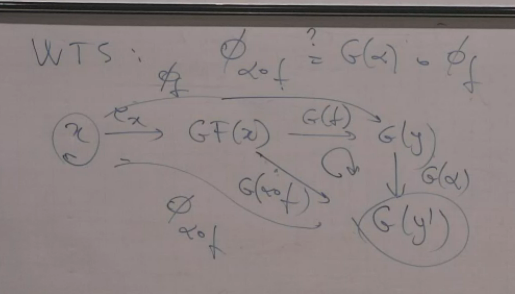 WTS: ϕ_{α∘f} ?= G(α) ∘ ϕ_f
ϕ_f
x ε_x GF(x) G(f) G(y)
G(α∘f) G(α)
ϕ_{α∘f} G(y')